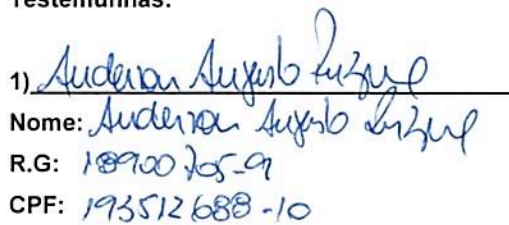 Testemunhas:
1) Anderson Augusto
Nome: Anderson Augusto
R.G: 18900705-9
CPF: 193512688-10